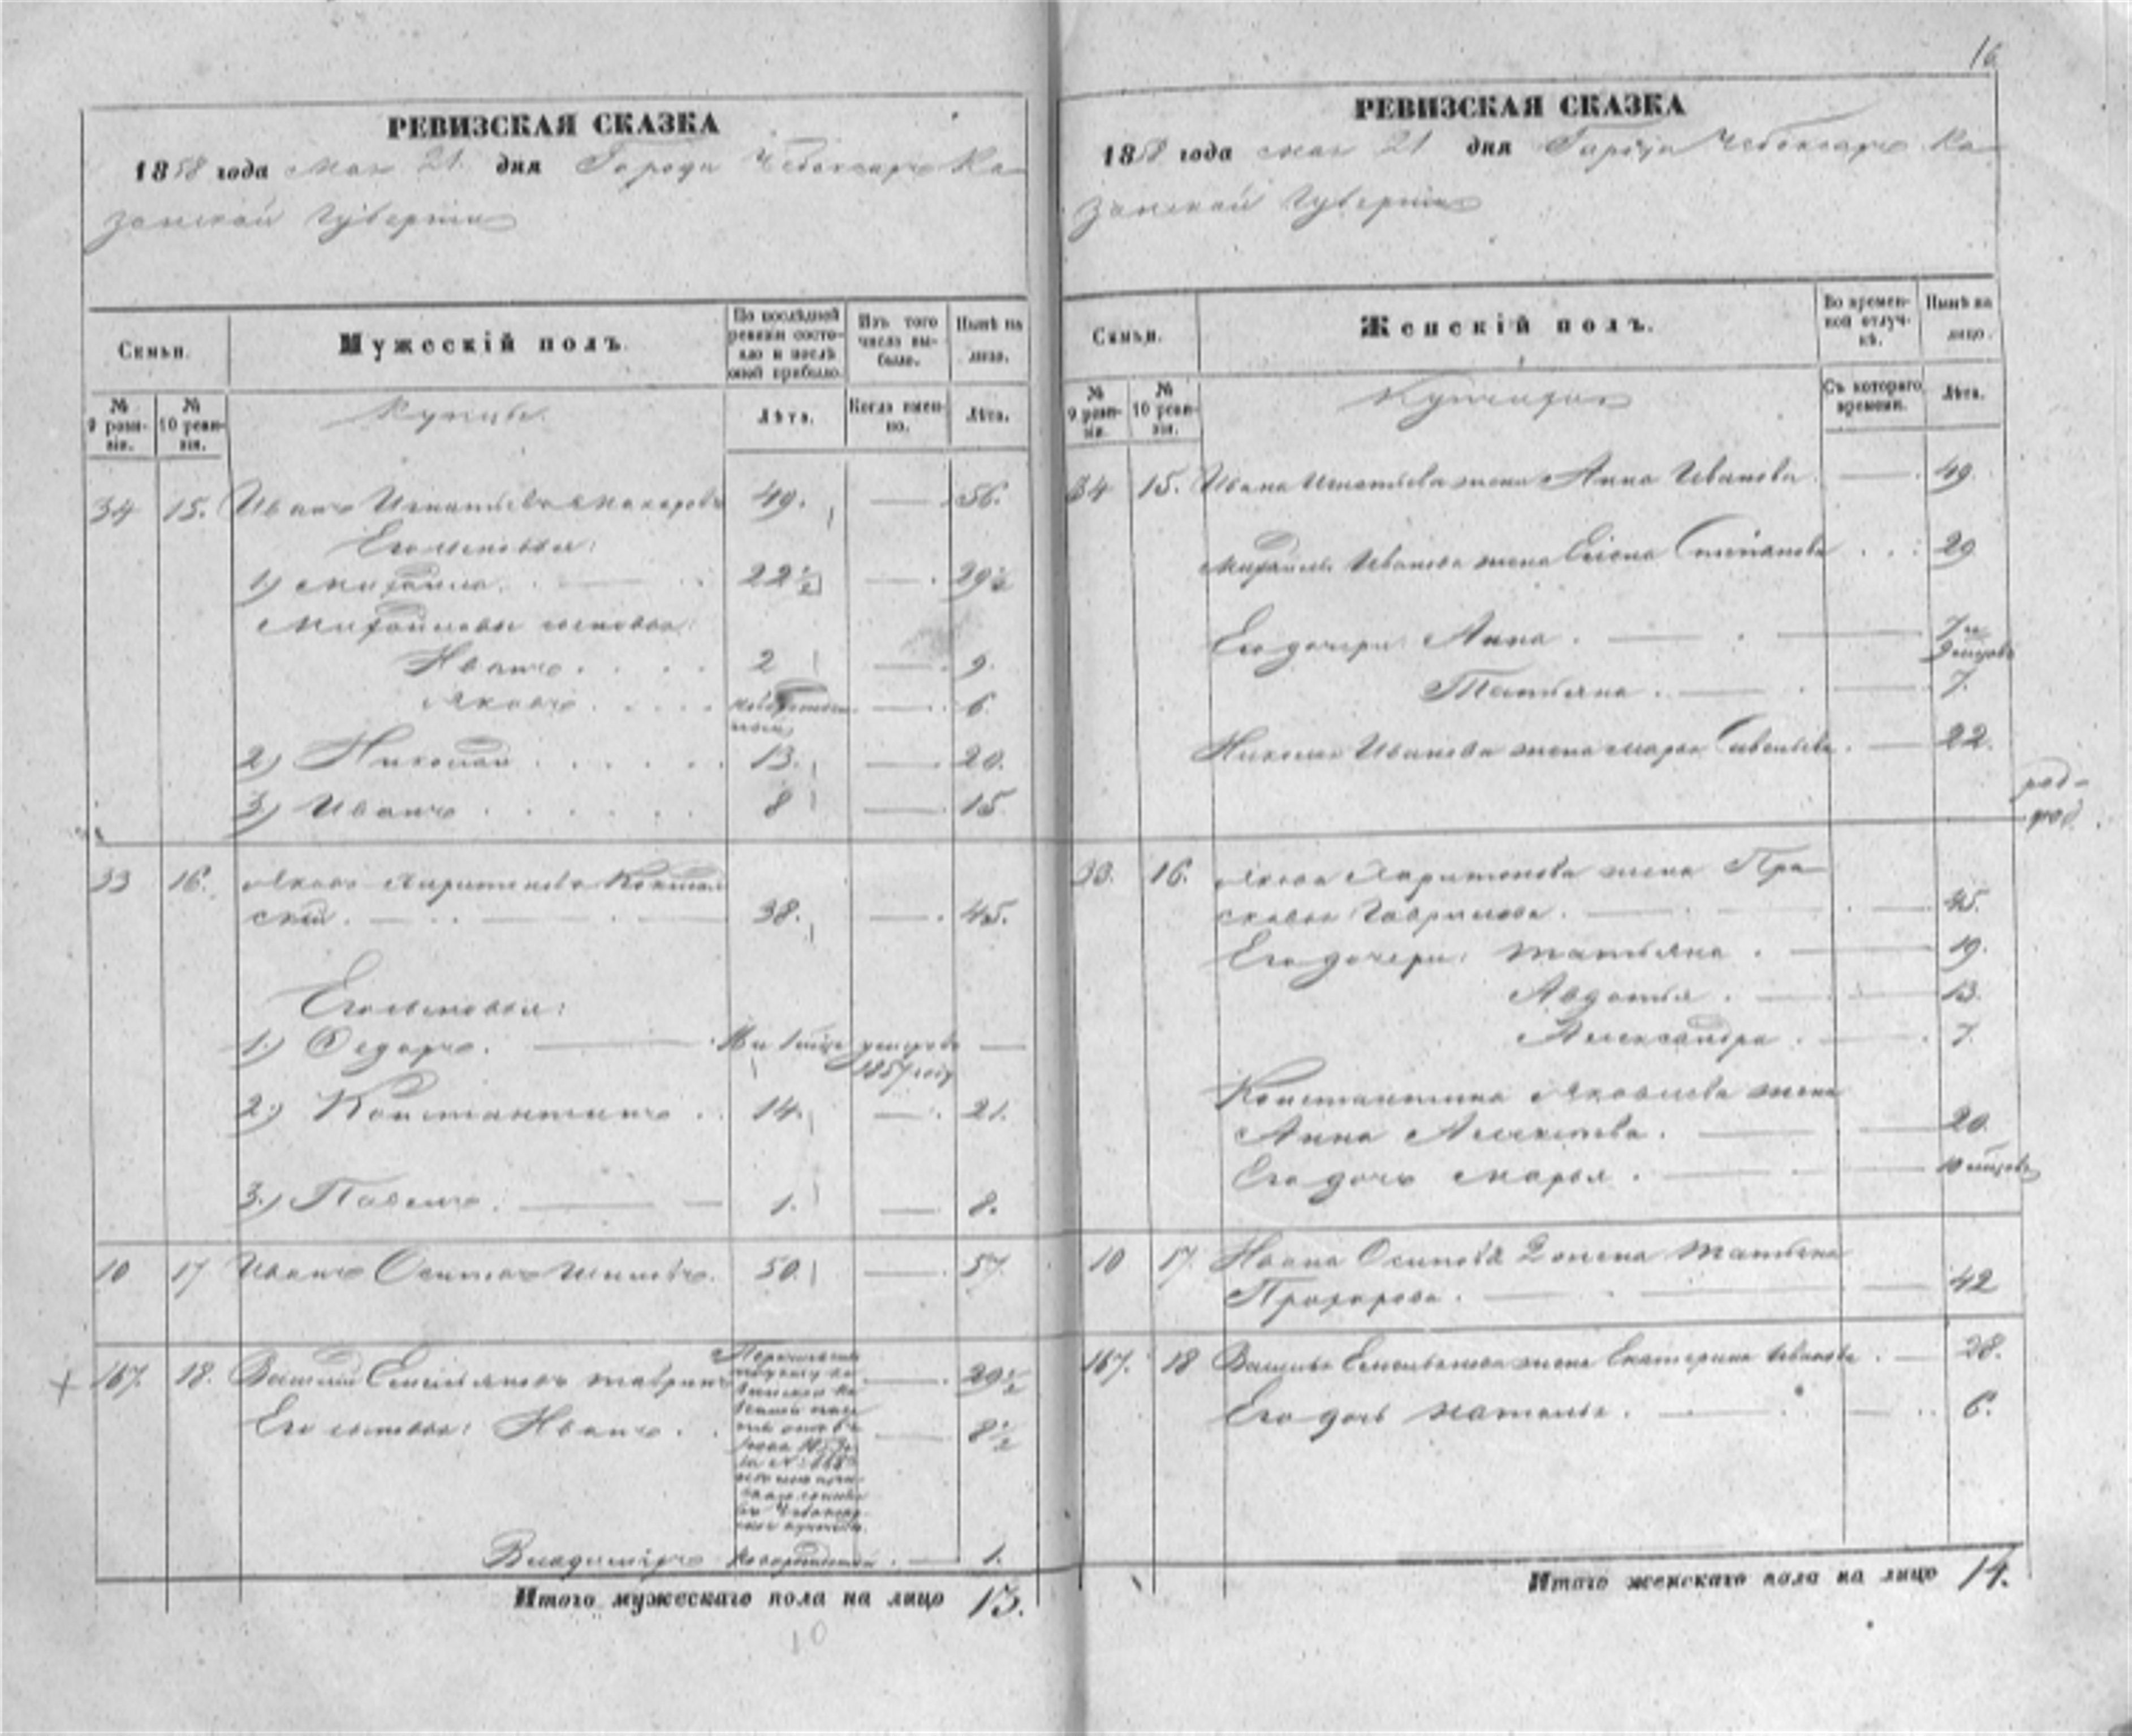 РЕВИЗСКАЯ СКАЗКА
1858 года мая 21 дня Города Чебоксаръ Ка-
занской Губерніи
Семьи.
Мужескій полъ.
По послѣдней ревизіи состояло и послѣ оной прибыло.
Изъ того числа выбыло.
Нынѣ на лицо.
№ 9 ревизіи.
№ 10 ревизіи.
Купцы.
Лѣта.
Когда именно.
Лѣта.
34 15. Иванъ Игнатьевъ Макаровъ 49. — 56.
Его сыновья:
1) Михаила. — 22½ — 29½
Михайловы сыновья:
Иванъ. 2 — 9.
Яковъ. новорожденный — 6
2) Николай 13. — 20.
3) Иванъ 8 — 15
33 16. Яковъ Харитоновъ
ской. — 38. — 45.
Его сыновья:
1.) Федоръ. — умеръ въ —
1857 году
2.) Константинъ 14. — 21.
3.) Павелъ. — 1. — 8.
10 17 Иванъ Осиповъ Шиповъ. 50. — 57.
167. 18. Василій Емельяновъ — 29½
Его сыновья: Иванъ. — 8½
Владиміръ новорожденный. — 1.
Итого мужескаго пола на лицо 13.
10
16
РЕВИЗСКАЯ СКАЗКА
1858 года мая 21 дня Города Чебоксаръ Ка-
занской Губерніи
Семьи.
Женскій полъ.
Во временной отлучкѣ.
Нынѣ на лицо.
№ 9 ревизіи.
№ 10 ревизіи.
Съ котораго времени.
Лѣта.
34 15. Ивана Игнатьева жена Анна Иванова. — 49.
Михайлы Иванова жена Елена Степанова 29
Его дочери: Анна. — 7 и
9 мѣсяцовъ
Татьяна. — 7.
Николая Иванова жена Марья Савельева. — 22.
33. 16. Якова Харитонова жена Пра-
сковья Гаврилова. — 45.
Его дочери: Татьяна. — 19.
Авдотья. — 13.
Александра. — 7
Константина Яковлева жена
Анна Алексеева. — 20.
Его дочь Марья. — 10 мѣсяцовъ
10 17. Ивана Осипова 2 жена Татьяна
Прохорова. — 42
167. 18 Василья Емельянова жена Екатерина Иванова. — 28.
Его дочь Наталья. — 6.
Итого женскаго пола на лицо 14.